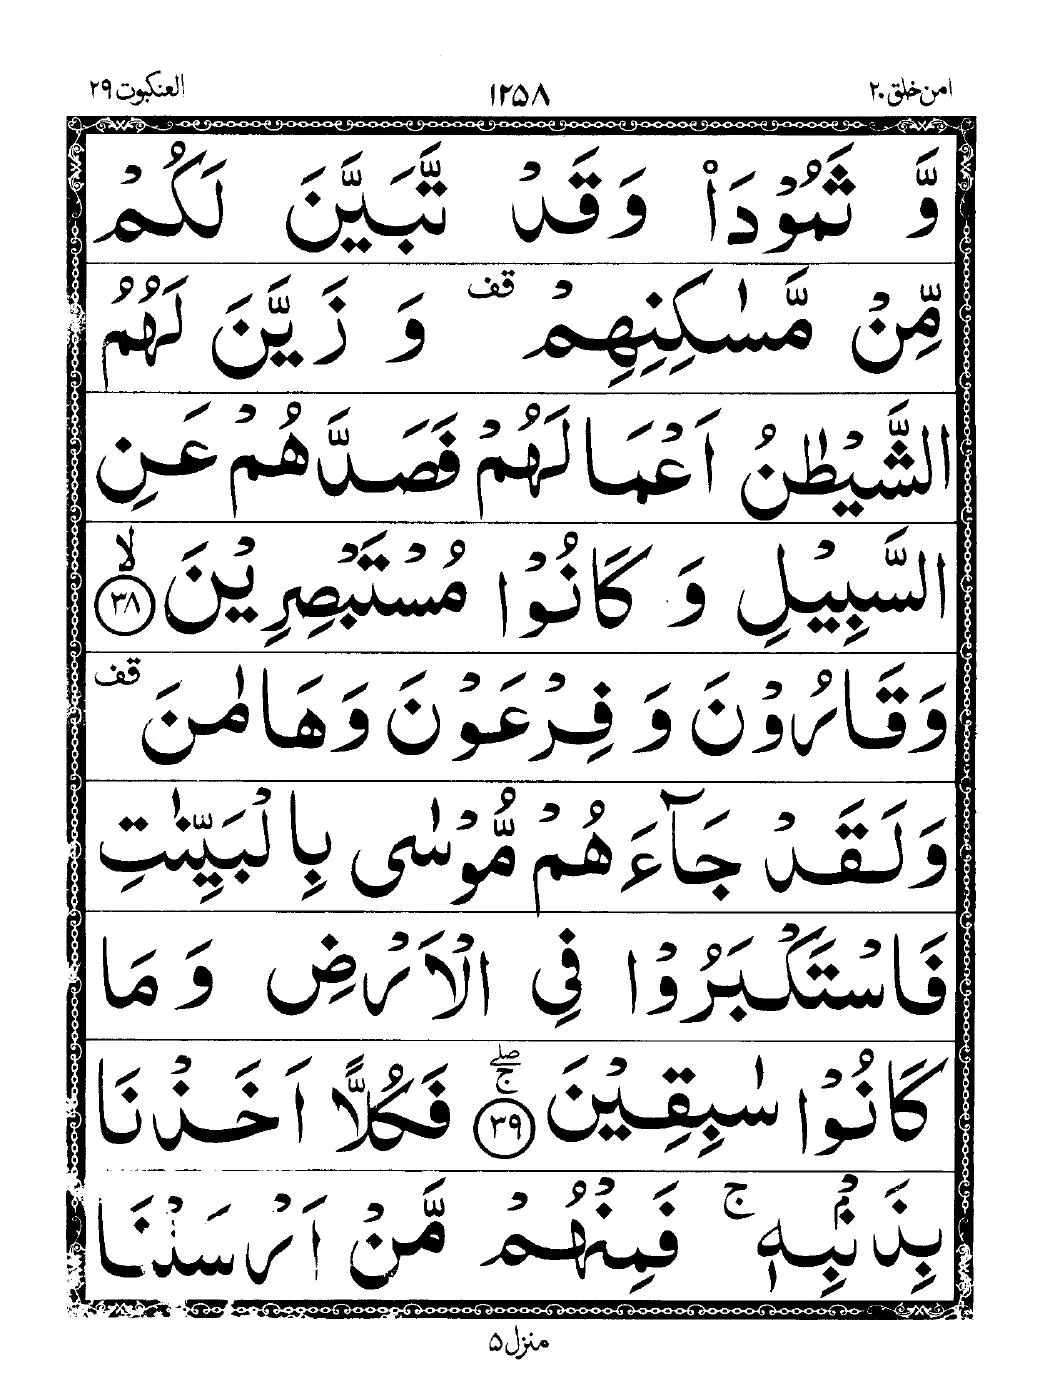 امن خلق ۲۰
۱۲۵۸
العنکبوت ۲۹
وَّ ثَمُوْدَا۠ وَقَدْ تَّبَيَّنَ لَكُمْ
مِّنْ مَّسٰكِنِهِمْ ۫قف وَ زَيَّنَ لَهُمُ
الشَّيْطٰنُ اَعْمَالَهُمْ فَصَدَّهُمْ عَنِ
السَّبِيْلِ وَ كَانُوْا مُسْتَبْصِرِيْنَ لا ۳۸
وَقَارُوْنَ وَ فِرْعَوْنَ وَهَامٰنَ قف
وَلَقَدْ جَآءَهُمْ مُّوْسٰى بِالْبَيِّنٰتِ
فَاسْتَكْبَرُوْا فِي الْاَرْضِ وَ مَا
كَانُوْا سٰبِقِيْنَ صلے ج ۳۹ فَكُلًّا اَخَذْنَا
بِذَنْۢبِهٖ ج فَمِنْهُمْ مَّنْ اَرْسَلْنَا
منزل ۵